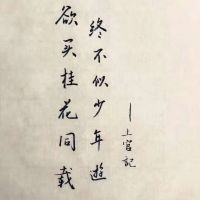 欲买桂花同载
终不似少年遊
—上官記